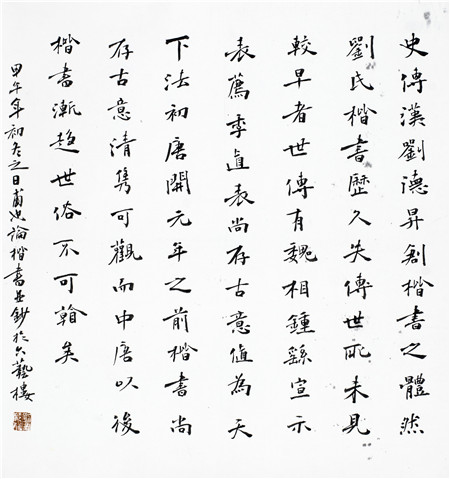 史傳漢劉德昇創楷書之體然
劉氏楷書歷久失傳世所未見
較早者世傳有魏相鍾繇宣示
表薦季直表尚存古意值為天
下法初唐開元年之前楷書尚
存古意清雋可觀而中唐以後
楷書漸趨世俗不可翰矣
甲午年初冬之日甫忠論楷書並鈔於六藝樓